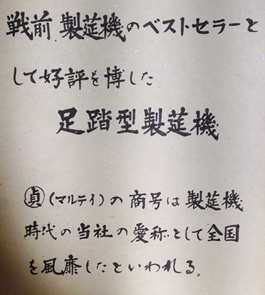 戦前 製莚機のベストセラーと
して好評を博した
足踏型製莚機
㊞(マルテイ)の商号は製莚機
時代の当社の愛称として全国
を風靡したといわれる。